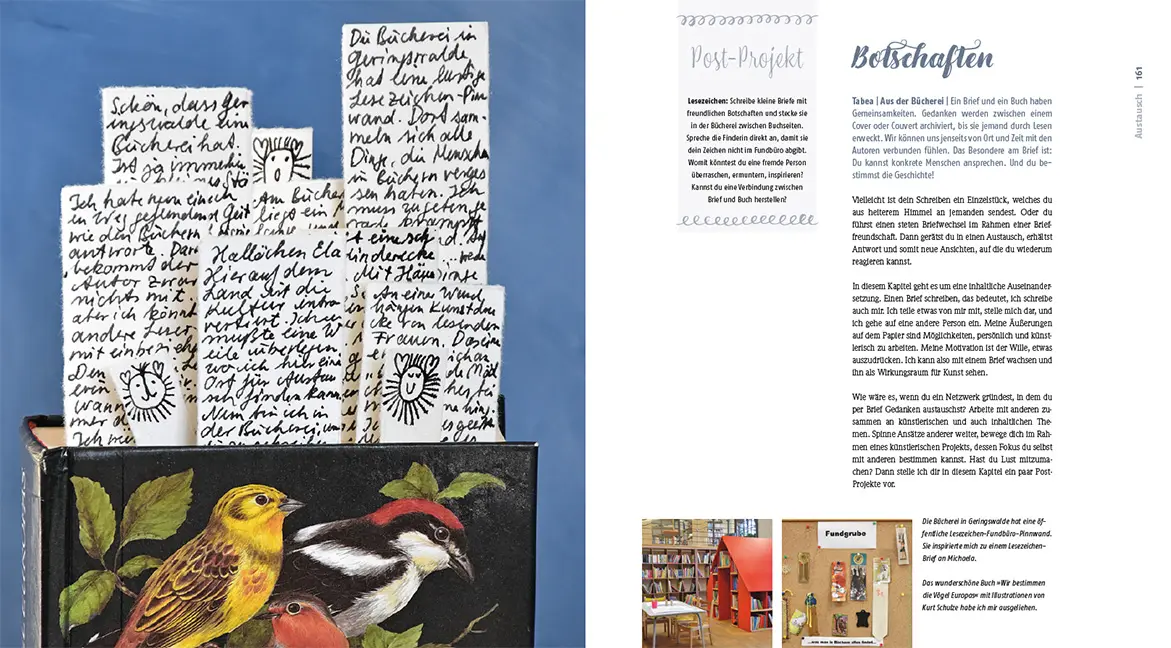 Schön, dass Ger
ingswalde ein
Bücherei hat.
Ist ja immerhin
Die Bücherei in
Geringswalde
hat eine lustige
Lesezeichen-Pin
wand. Dort sam-
meln sich alle
Dinge, die Menschen
in Büchern verges
sen haben. Ich
muss zugeben
Ich hatte
wie den Büchern
antworte.
bekommt der
Autor zwar
nichts mit.
aber ich könnte
andere Leser
mit einbe
Den
wann
Ich
Am Büche
liegt ein
Hallöchen Ela
Hier auf dem
Land ist die
Kultur intro
vertiert. Ich
mußte eine W
eile überlegen
wo ich hier ein
Ort für Austau
sch finden kann.
Nun bin ich in
der Bücherei, um
An einer Wand
hängen Kunstdru
cke von lesenden
Frauen.
Post-Projekt
Lesezeichen: Schreibe kleine Briefe mit
freundlichen Botschaften und stecke sie
in der Bücherei zwischen Buchseiten.
Spreche die Finderin direkt an, damit sie
dein Zeichen nicht im Fundbüro abgibt.
Womit könntest du eine fremde Person
überraschen, ermuntern, inspirieren?
Kannst du eine Verbindung zwischen
Brief und Buch herstellen?
Botschaften
Tabea | Aus der Bücherei | Ein Brief und ein Buch haben
Gemeinsamkeiten. Gedanken werden zwischen einem
Cover oder Couvert archiviert, bis sie jemand durch Lesen
erweckt. Wir können uns jenseits von Ort und Zeit mit den
Autoren verbunden fühlen. Das Besondere am Brief ist:
Du kannst konkrete Menschen ansprechen. Und du be-
stimmst die Geschichte!
Vielleicht ist dein Schreiben ein Einzelstück, welches du
aus heiterem Himmel an jemanden sendest. Oder du
führst einen steten Briefwechsel im Rahmen einer Brief-
freundschaft. Dann gerätst du in einen Austausch, erhältst
Antwort und somit neue Ansichten, auf die du wiederum
reagieren kannst.
In diesem Kapitel geht es um eine inhaltliche Auseinander-
setzung. Einen Brief schreiben, das bedeutet, ich schreibe
auch mir. Ich teile etwas von mir mit, stelle mich dar, und
ich gehe auf eine andere Person ein. Meine Äußerungen
auf dem Papier sind Möglichkeiten, persönlich und künst-
lerisch zu arbeiten. Meine Motivation ist der Wille, etwas
auszudrücken. Ich kann also mit einem Brief wachsen und
ihn als Wirkungsraum für Kunst sehen.
Wie wäre es, wenn du ein Netzwerk gründest, in dem du
per Brief Gedanken austauschst? Arbeite mit anderen zu-
sammen an künstlerischen und auch inhaltlichen The-
men. Spinne Ansätze anderer weiter, bewege dich im Rah-
men eines künstlerischen Projekts, dessen Fokus du selbst
mit anderen bestimmen kannst. Hast du Lust mitzuma-
chen? Dann stelle ich dir in diesem Kapitel ein paar Post-
Projekte vor.
Austausch | 161
Fundgrube
...was man in Büchern alles findet...
Die Bücherei in Geringswalde hat eine öf-
fentliche Lesezeichen-Fundbüro-Pinnwand.
Sie inspirierte mich zu einem Lesezeichen-
Brief an Michaela.
Das wunderschöne Buch »Wir bestimmen
die Vögel Europas« mit Illustrationen von
Kurt Schulze habe ich mir ausgeliehen.